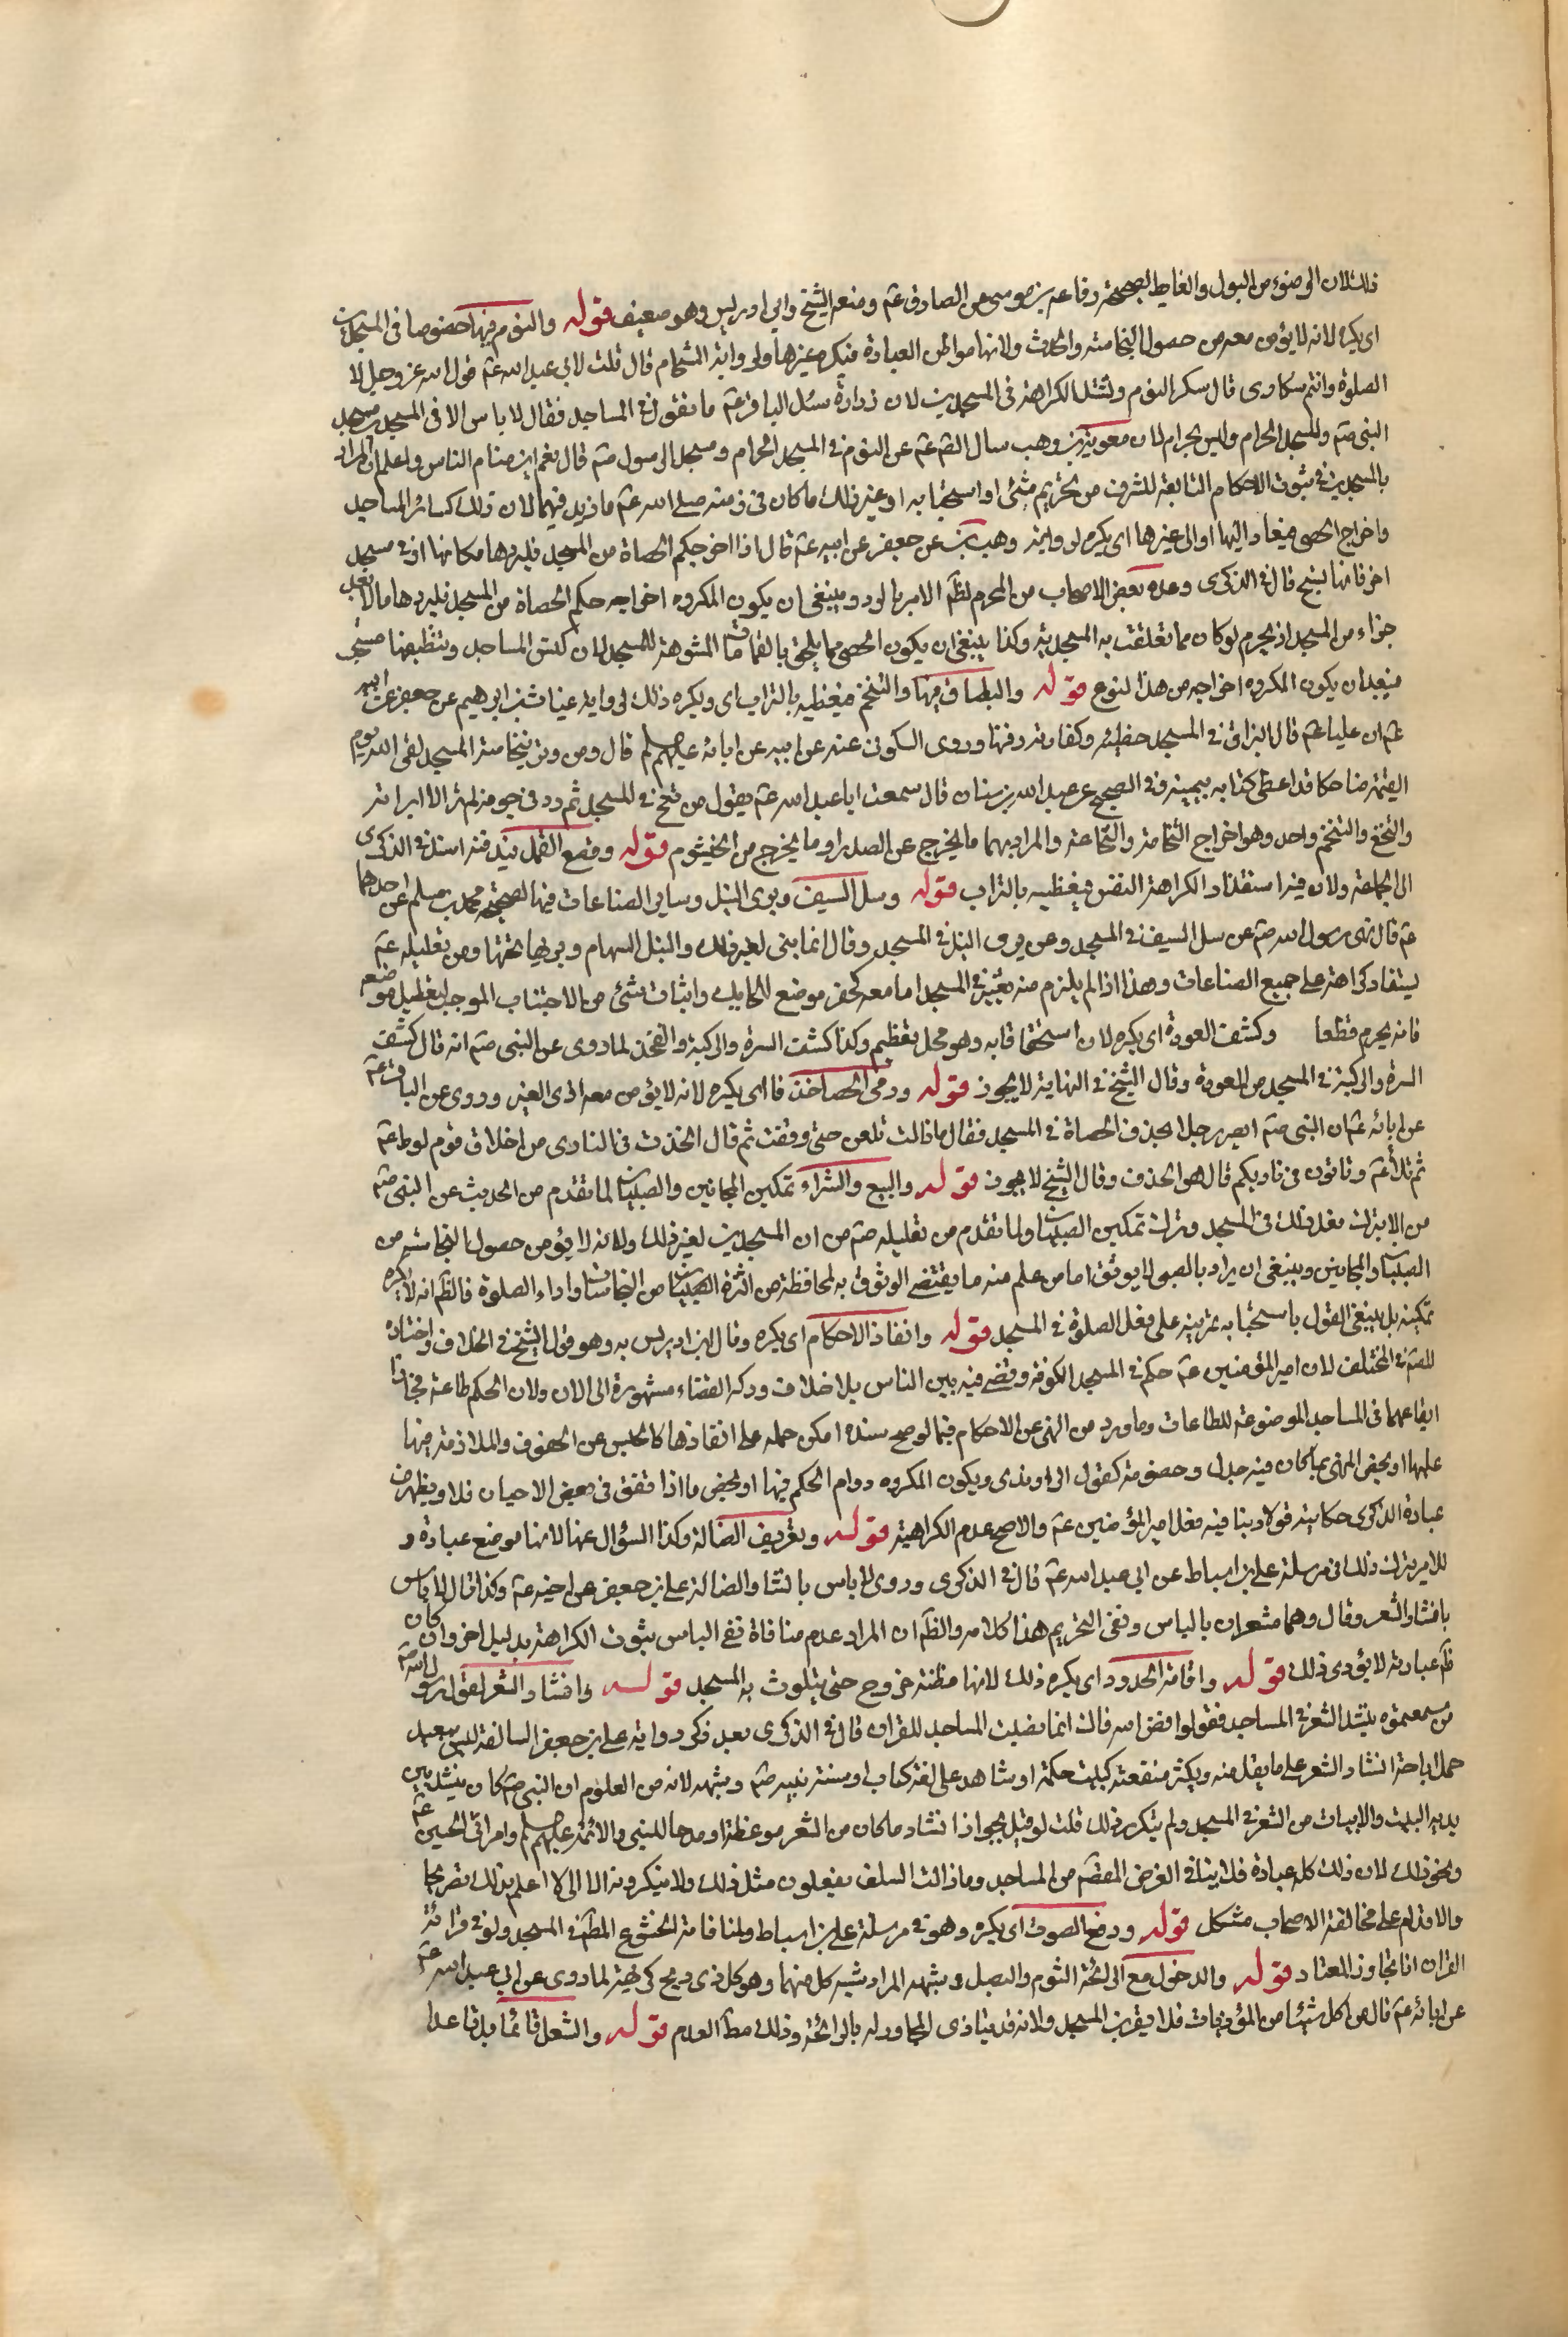 ذلك لان الوضوء من البول والغايط لصحيحة رفاعة بن موسى عن الصادق عم ومنعه الشيخ وابن ادريس وهو ضعيف قوله والنوم فيها خصوصا في المسجدين
اى يكره لانه لا يؤمن معه من حصول النجاسة والحدث ولانها مواطن العبادة فيكره غيرها ولرواية الشحام قال قلت لابي عبد الله عم قول الله عز وجل لا
الصلوة وانتم سكارى قال سكر النوم ويشتد الكراهة في المسجدين لان زرارة سئل الباقر عم ما تقول في المساجد فقال لا باس الا في المسجدين مسجد
النبي صم والمسجد الحرام وليس بحرام لان معوية بن وهب سال الصم عم عن النوم في المسجد الحرام ومسجد الرسول صم قال نعم اين منام الناس واعلم ان المراد
بالمسجدين في ثبوت الاحكام التابعة للشرف من تحريم شئ او استحبابه او غير ذلك ما كان في زمنه صلى الله عم ما زيد فيهما لان ذلك كسائر المساجد
واخراج الحصى فيعاد اليها او الى غيرها اى يكره لرواية وهب بن عن جعفر عن ابيه عم قال اذا اخرج احدكم الحصاة من المسجد فليردها مكانها او في مسجد
اخر فانها تسبح قال في الذكرى وعده بعض الاصحاب من المحرم لظم الامر بالرد وينبغي ان يكون المكروه اخراجه حكم الحصاة من المسجد فليردها مالا يعد
جزاء من المسجد اذ يحرم لو كان مما تعلقت به المسجدية وكذا ينبغي ان يكون الحصى مما يلحق بالقمامات المشوهة للمسجد لان كنس المساجد وتنظيفها مستحب
فيبعد ان يكون المكروه اخراجه من هذا النوع قوله والبصاق فيها والتنخم فيغطيه بالتراب اى ويكره ذلك لرواية غياث بن ابرهيم عن جعفر عن ابيه
عم ان عليا عم قال البزاق في المسجد خطيئة وكفارته دفنها وروى السكوني عنه عن ابيه عن ابائه عليهم السلم قال ومن وقر بنخامته المسجد لقى الله يوم
القيمة ضاحكا قد اعطى كتابه بيمينه وفي الصحيح عن عبد الله بن سنان قال سمعت ابا عبد الله عم يقول من تنخع في المسجد ثم ردها في جوفه لم تمر بداء الا ابراته
والتنخع والتنخم واحد وهو اخراج النخامة والنخاعة والمراد بهما ما يخرج عن الصدر او ما يخرج من الخيشوم قوله وقصع القمل فيدفنه اسنده في الذكرى
الى الجماعة ولان فيه استقذارا لكراهة النفس فيغطيه بالتراب قوله وسل السيف وبرى النبل وساير الصناعات فيها لصحيحة محمد بن مسلم عن احدهما
عم قال نهى رسول الله صم عن سل السيف في المسجد وعن برى النبل في المسجد وقال انما بنى لغير ذلك والنبل السهام وبريها نحتها ومن تعليله عم
يستفاد كراهة عمل جميع الصناعات وهذا اذا لم يلزم منه تغيير في المسجد اما معه كحفر موضع الحايك واثبات شئ من الاخشاب الموجب لتعطيل موضعه
فانه يحرم قطعا وكشف العورة اى يكره لان استخفافا به وهو محل تعظيم وكذا كشف السرة والركبة والفخذ لما روى عن النبي صم انه قال كشف
السرة والركبة في المسجد من العورة وقال الشيخ في النهاية لا يجوز قوله ورمى الحصا خذفا اى يكره لانه لا يؤمن معه اذى الغير وروى عن الباقر عم
عن ابائه عم ان النبي صم ابصر رجلا يخذف الحصاة في المسجد فقال ما زالت تلعن حتى وقعت ثم قال الخذف في النادى من اخلاق قوم لوط عم
ثم تلا عم وتاتون في ناديكم قال هو الخذف وقال الشيخ لا يجوز قوله والبيع والشراء تمكين المجانين والصبيان لما تقدم من الحديث عن النبي صم
من الابترك فعل ذلك في المسجد وترك تمكين الصبيان ولما تقدم من تعليله صم من ان المسجد بنى لغير ذلك ولانه لا يؤمن حصول النجاسة من
الصبيان والمجانين وينبغي ان يراد بالصبي لا يوثق اما من علم منه ما يقتضي الوثوق به لمحافظته من اثرة الصبيان من النجاسات واداء الصلوة فالظم انه لا يكره
تمكينه بل ينبغي القول باستحبابه تمرينه على فعل الصلوة في المسجد قوله وانفاذ الاحكام اى يكره وقال ابن ادريس به وهو قول الشيخ في الخلاف واختاره
المص في المختلف لان امير المؤمنين عم حكم في المسجد الكوفة وقضى فيه بين الناس بلا خلاف ودكة القضاء مشهورة الى الان ولان الحكم طاعة فجاز
ايقاعها في المساجد الموضوعة للطاعات وما ورد من النهى عن الاحكام فيها لو صح سنده امكن حمله على انفاذها كالحبس عن الحقوق والملازمة فيها
عليها او يخص النهى بما كان فيه جدل وخصومة كقول الراوندى ويكون المكروه دوام الحكم فيها او يخص ما اذا تفق في بعض الاحيان فلا ويظهر من
عبارة الذكرى حكايته قولا وينافيه فعل امير المؤمنين عم والاصح عدم الكراهية قوله وتعريف الضالة وكذا السؤال عنها لانها موضع عبادة و
للامر بترك ذلك في مرسلة علي بن اسباط عن ابي عبد الله عم قال في الذكرى وروى لا باس بانشاد الضالة علي بن جعفر عن اخيه عم وكذا قال لا باس
بانشاد الشعر وقال وهما مشعران بالباس ونفى التحريم هذا كلامه والظم ان المراد عدم منافاة نفى الباس ثبوت الكراهة بدليل اخر وان كان
ظم عبارته لا يؤدى ذلك قوله واقامة الحدود اى يكره ذلك لانها مظنة خروج حتى يتلوث به المسجد قوله وانشاد الشعر لقول رسول الله صم
من سمعتموه ينشد الشعر في المساجد فقولوا فض الله فاك انما نصبت المساجد للقران قال في الذكرى بعد ذكر رواية علي بن جعفر السالفة ليس ببعيد
حمل اباحة انشاد الشعر على ما يقل منه ويكثر منفعته كبيت حكمة او شاهد على لغة كتاب او سنة نبيه صم وشبهه لانه من المعلوم ان النبي صم كان ينشد بين
يديه البيت والابيات من الشعر في المسجد ولم ينكر ذلك قلت لو قيل بجواز انشاد ما كان من الشعر موعظة او مدحا للنبي والائمة عليهم السلم او مراثى الحسين عم
ونحو ذلك لان ذلك كله عبادة فلا ينافي الغرض المقصم من المساجد وما زالت السلف يفعلون مثل ذلك ولا ينكرونه الا انى لا اعلم بذلك تصريحا
والاقدام على مخالفة الاصحاب مشكل قوله ورفع الصوت اى يكره وهو في مرسلة علي بن اسباط ولمنافاته الخشوع المطم في المسجد ولو في قرائة
القران اذا تجاوز المعتاد قوله والدخول مع الرائحة الثوم والبصل وشبهه المراد شبه كل منهما وهو كل ذى ريح كريهة لما روى عن ابي عبد الله عم
عن ابائه عم قال من اكل شيئا من المؤذيات فلا يقربن المسجد ولانه قد يتاذى المجاور له بالرائحة وذلك مطم العدم قوله والتنعل قائما بل قاعدا